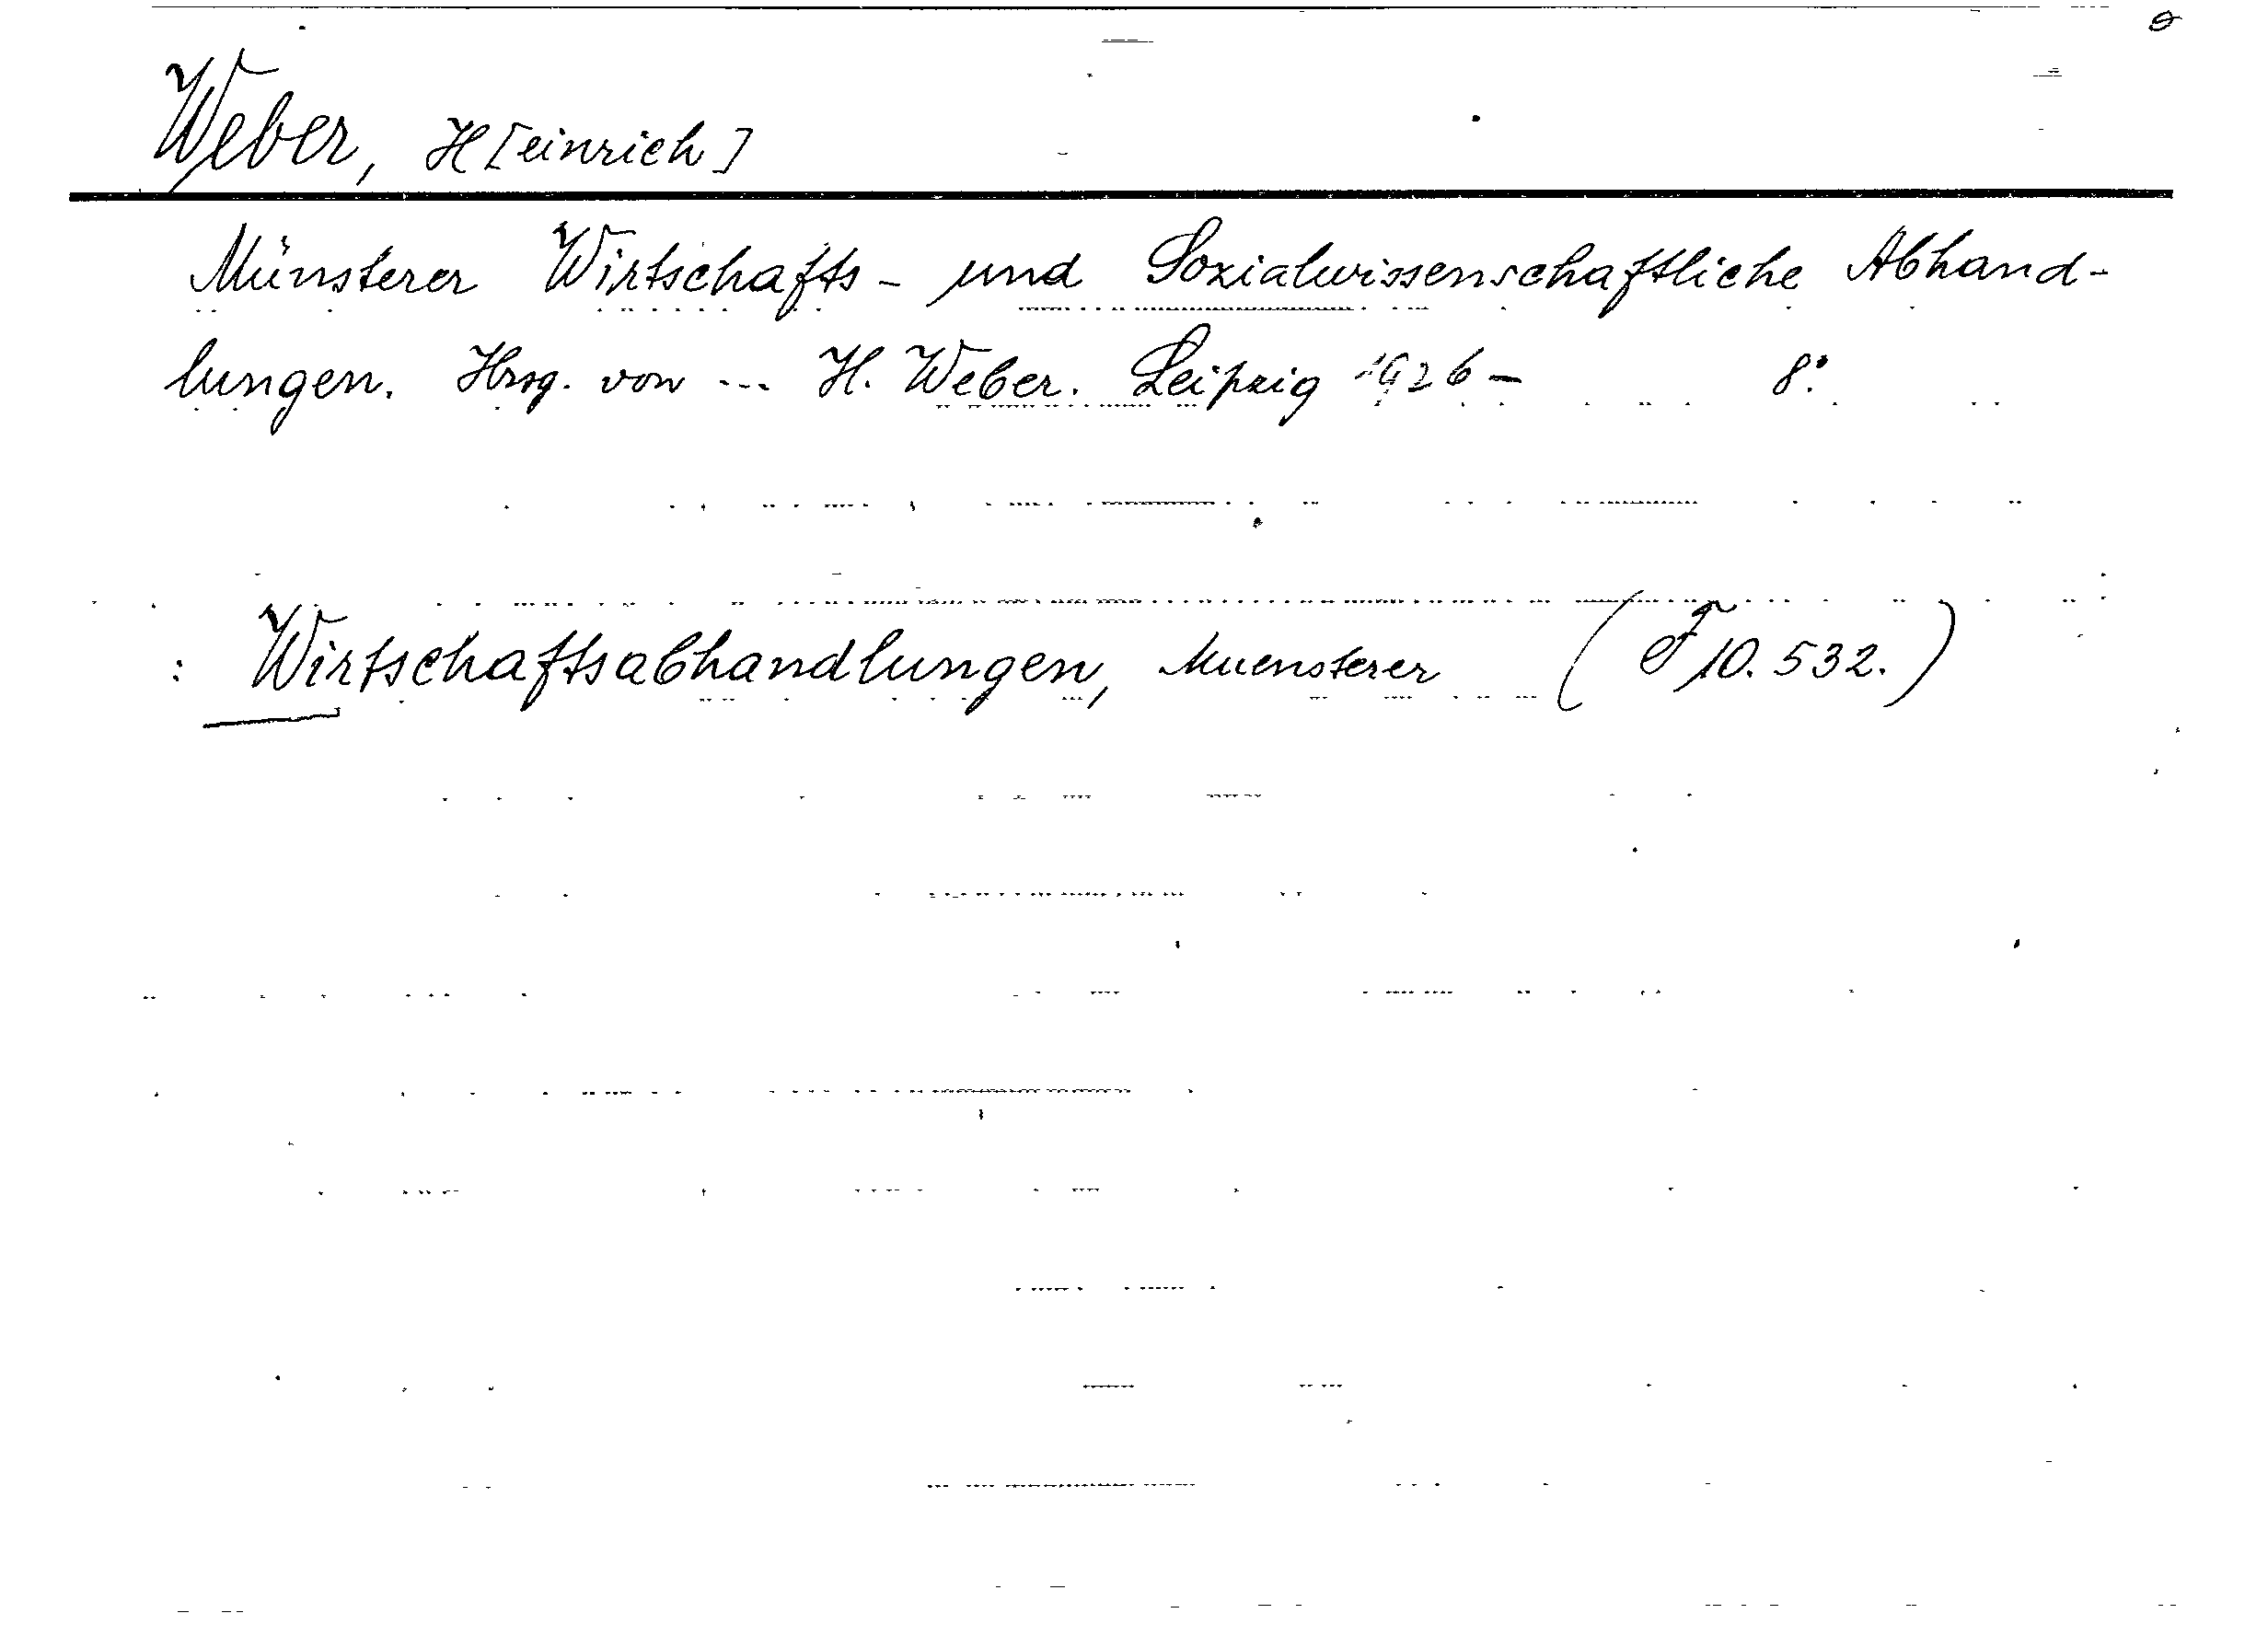 Weber, H[einrich]
Münsterer Wirtschafts- und Sozialwissenschaftliche Abhand-
lungen. Hrsg. von ... H. Weber. Leipzig 1926- 8°.
: Wirtschaftsabhandlungen, Muensterer (F 10.532.)